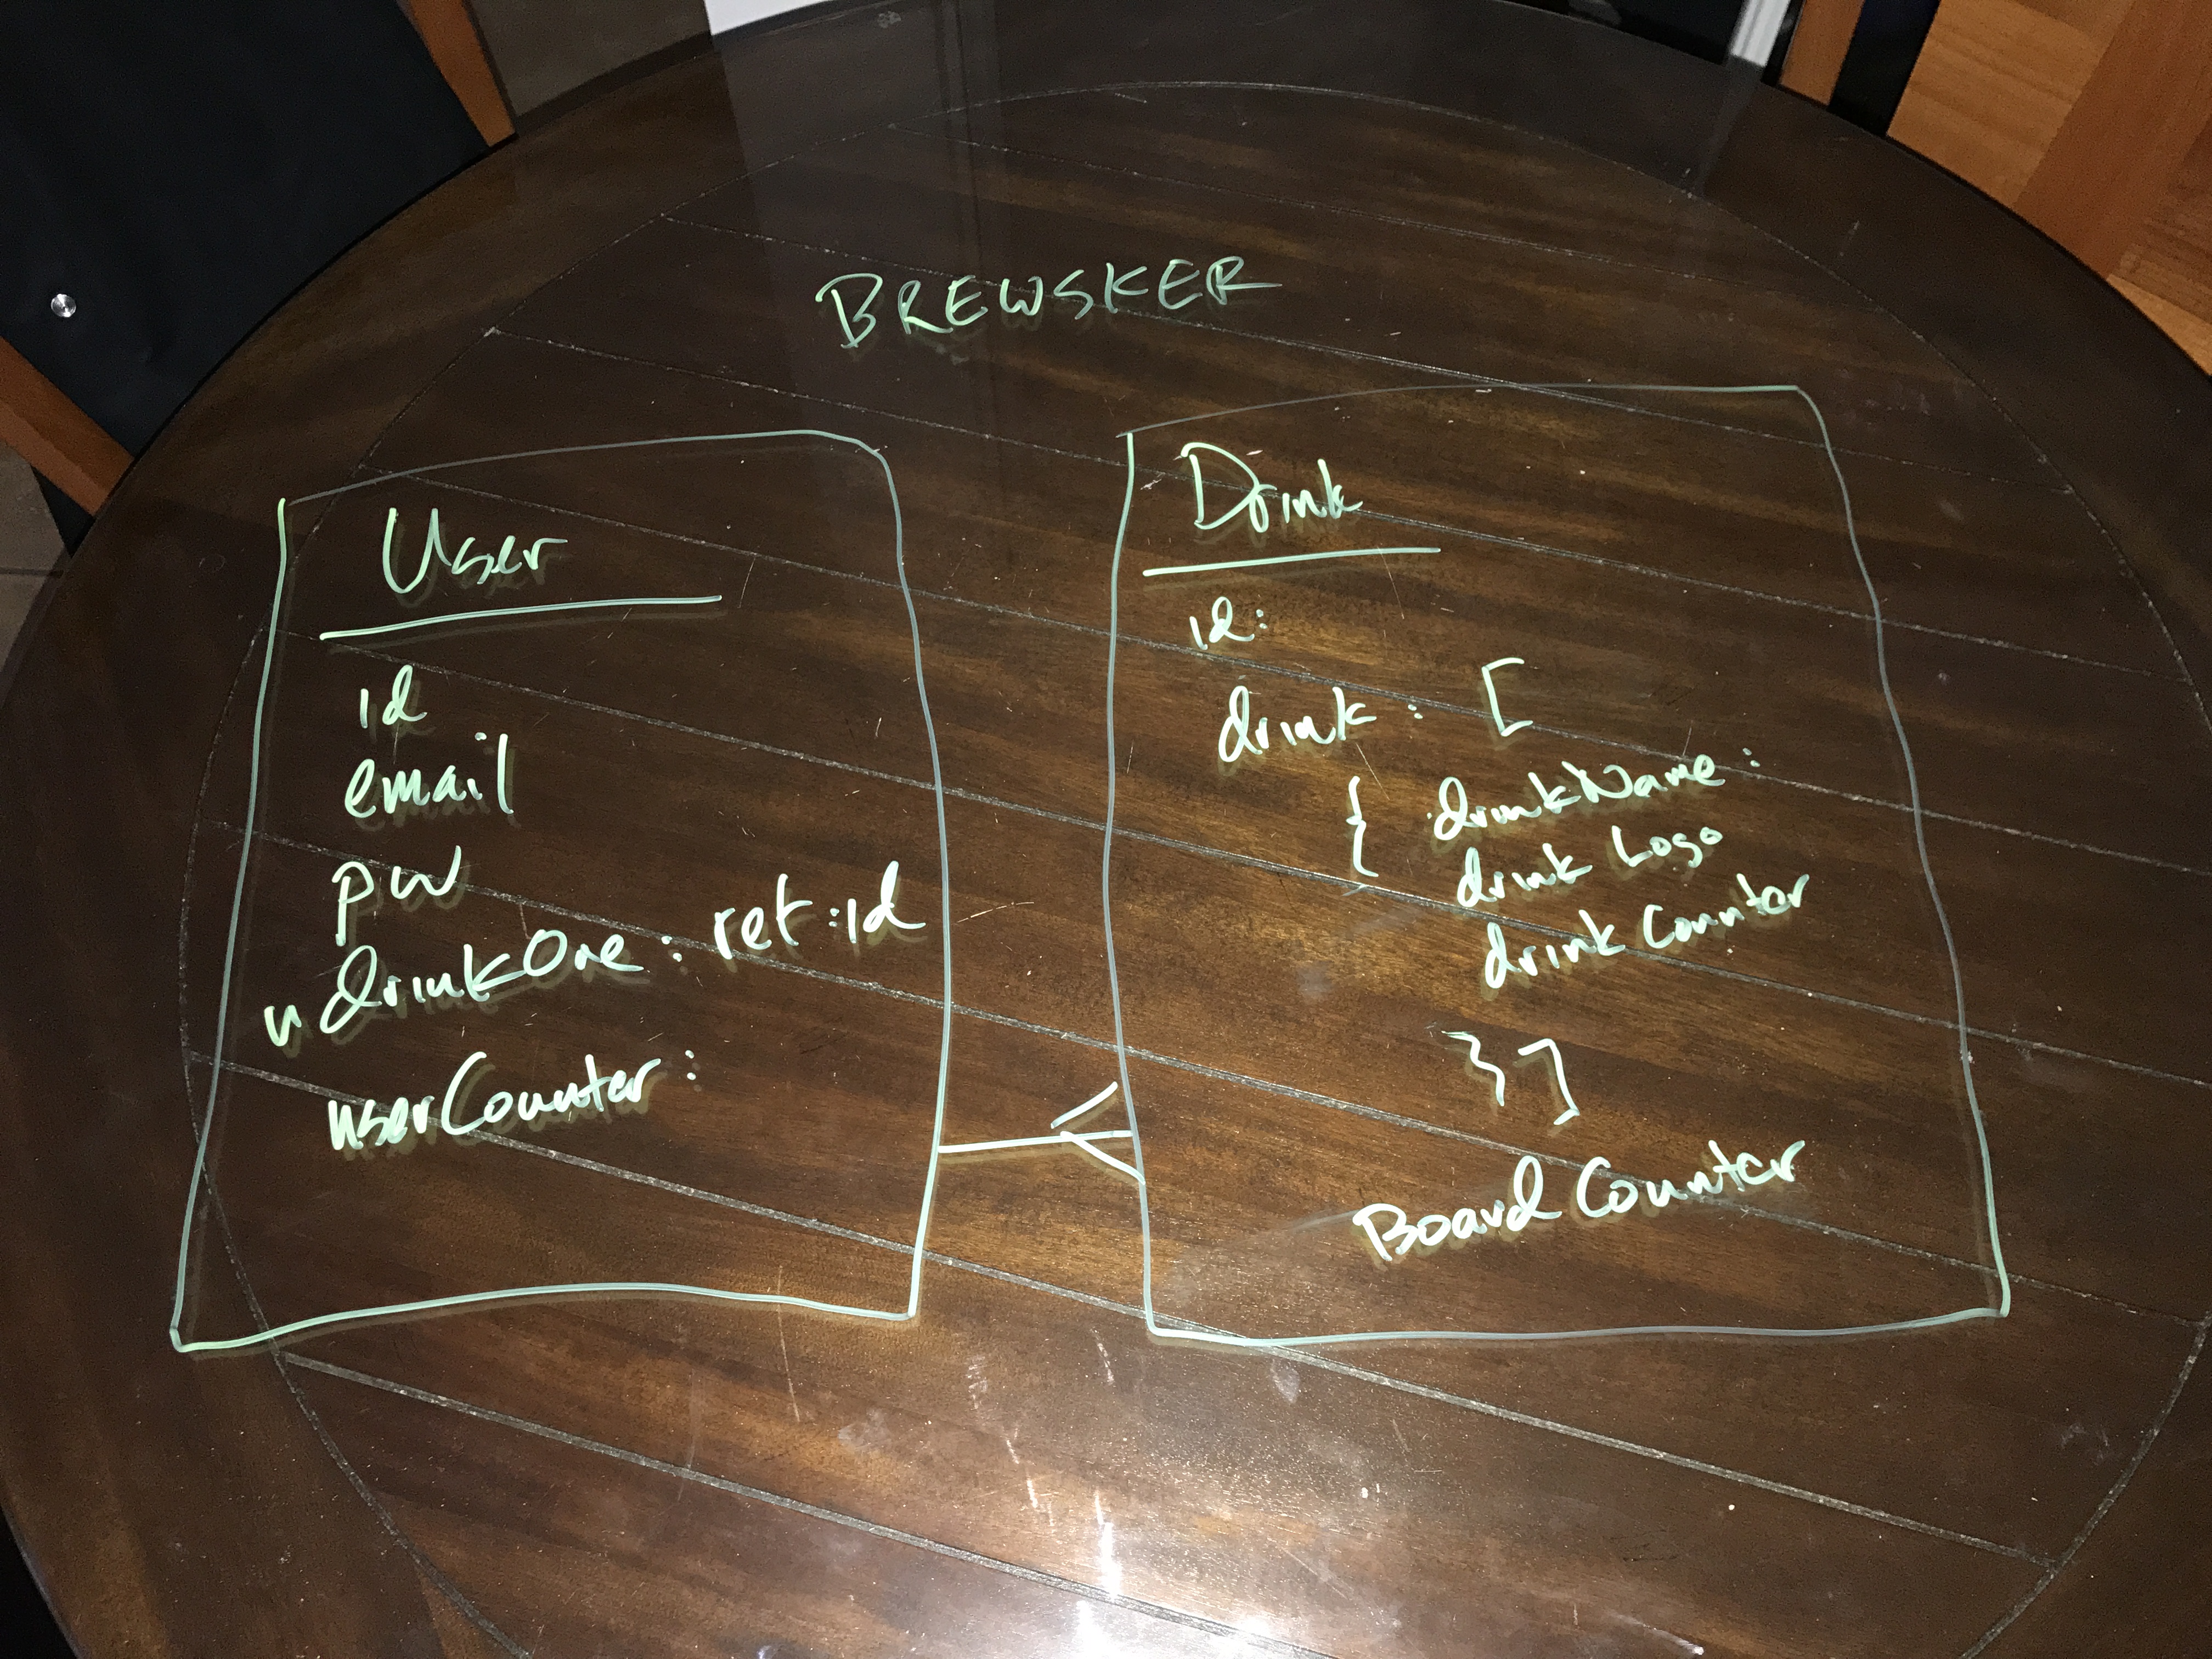 BREWSKER
User
id
email
pw
u drinkOne : ref:id
userCounter:
Drink
id:
drink : [
{ drinkName:
drink Logo
drink Counter
}]
Board Counter